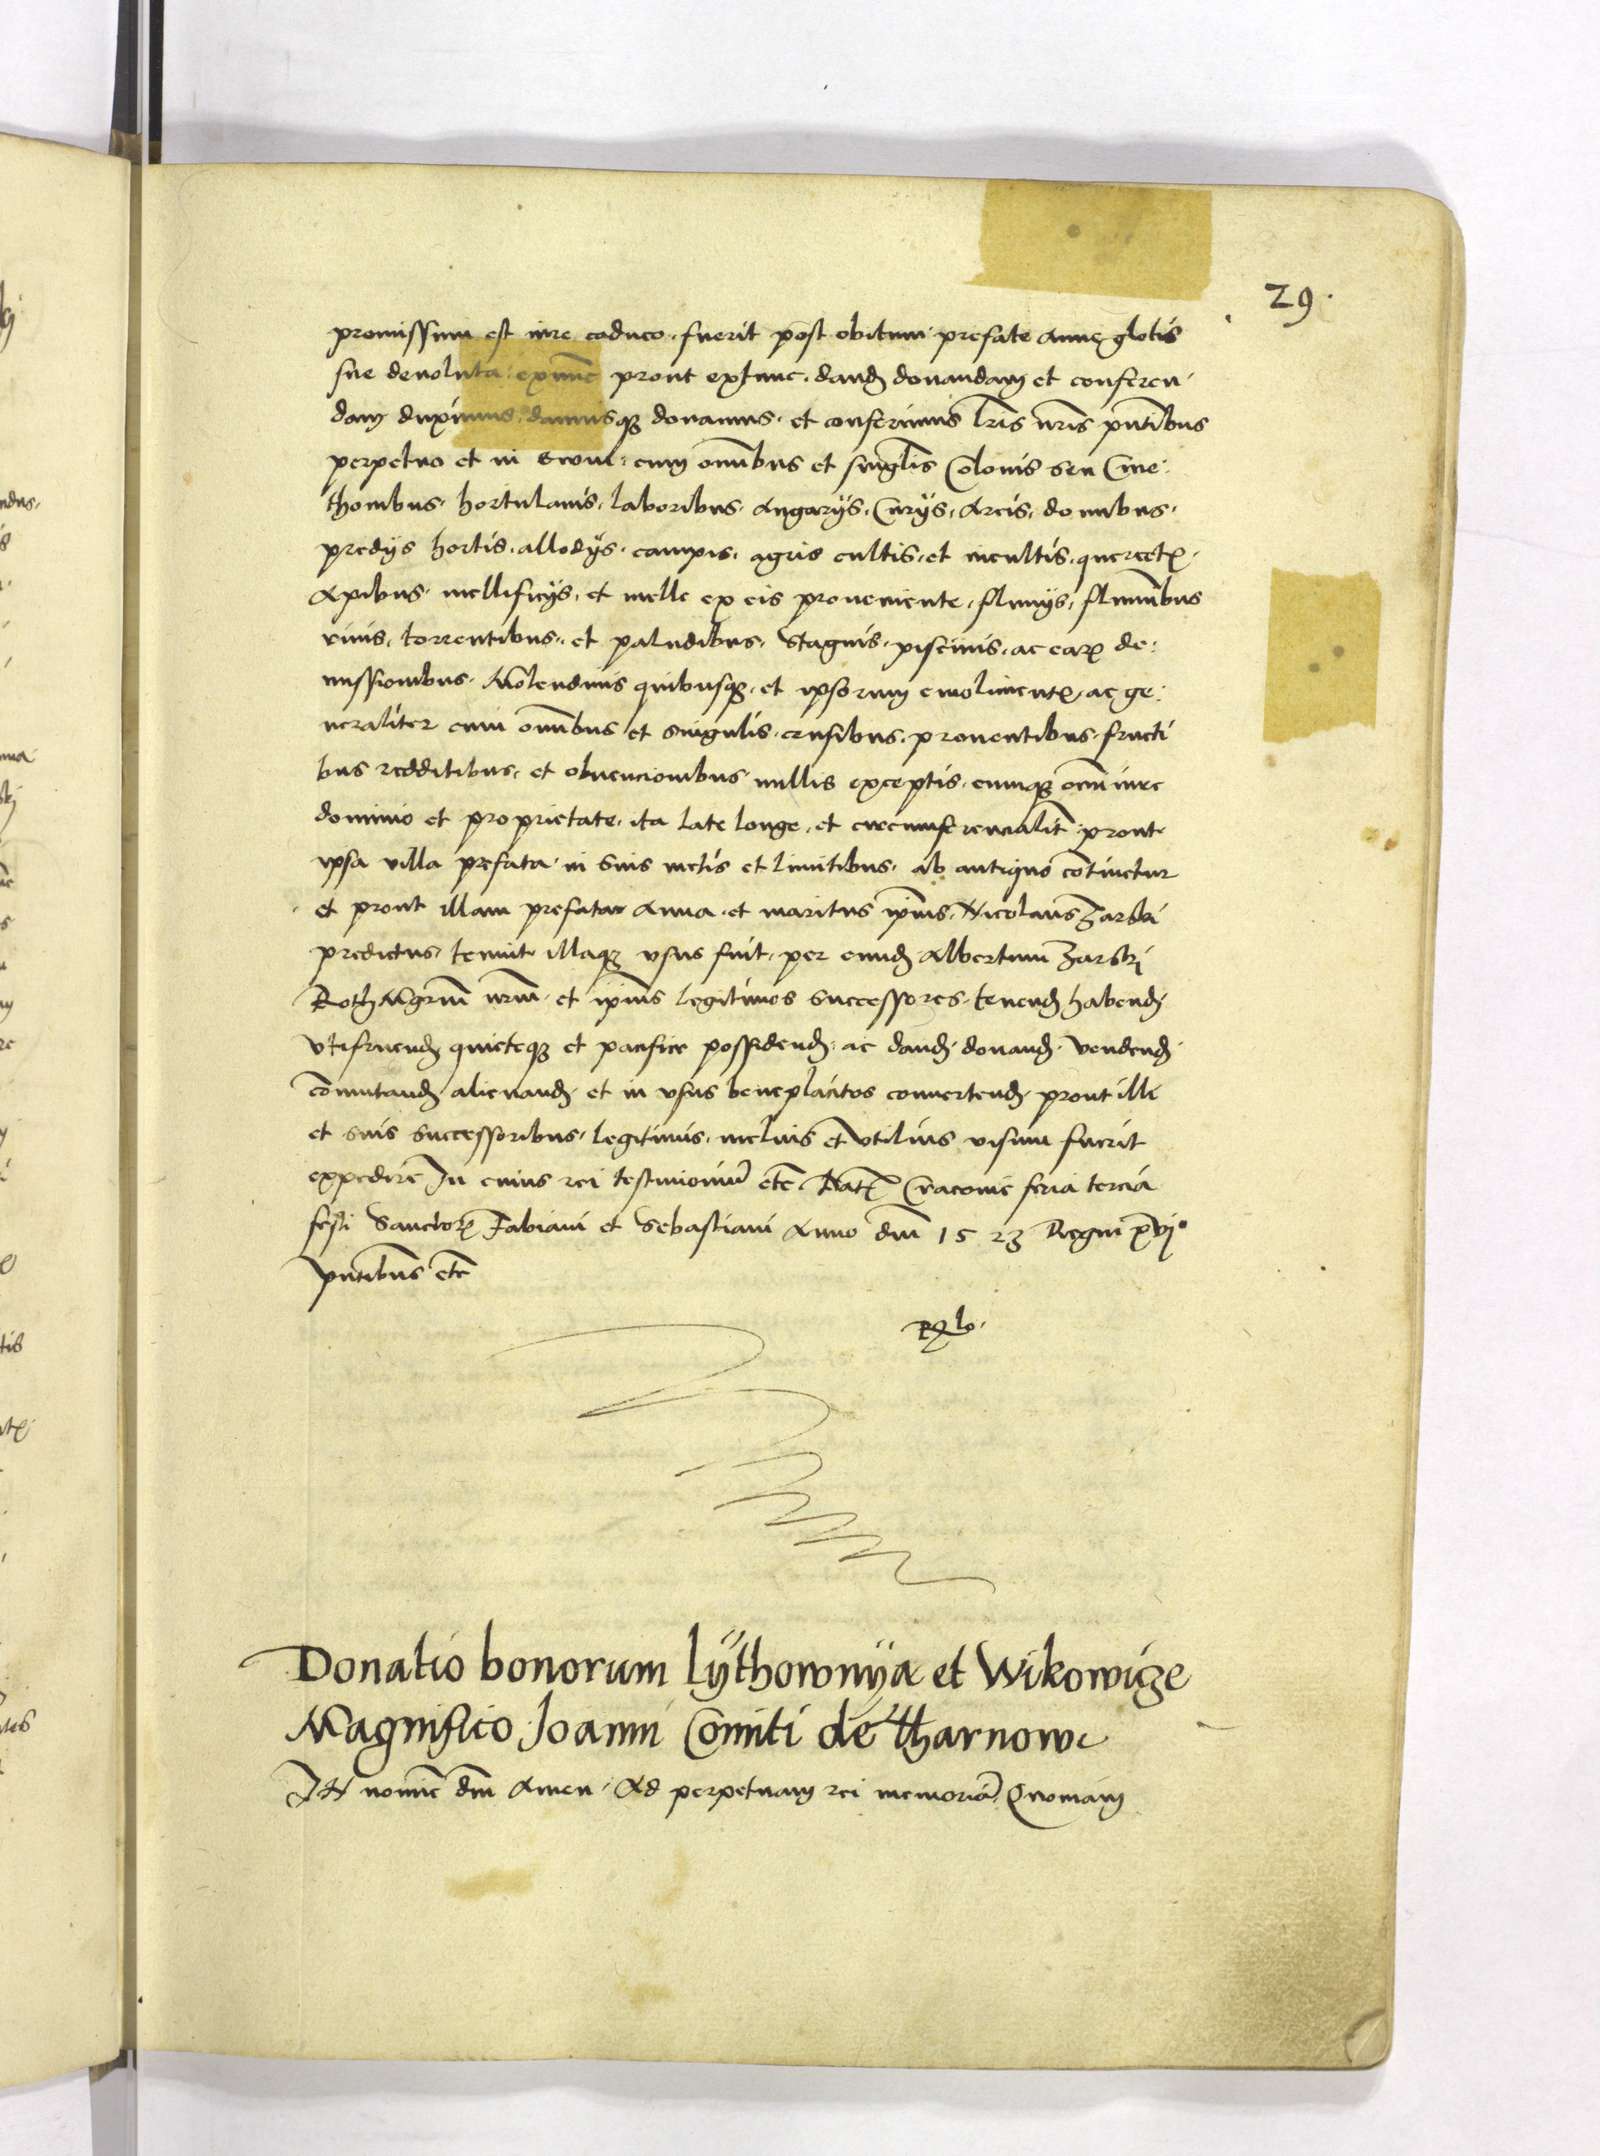 29.
promissum est iure caduco. fuerit post obitum prefate Anne glotis
sue devoluta. exnunc prout extunc. dand donandam et conferen
dam duximus. damusq donamus. et conferimus lris nris pntibus
perpetuo et in ewm: cum omibus et singlis Colonis seu Cme
thonibus. hortulanis. laboribus. Angarÿs. Curÿs. Arcis. domibus.
predÿs hortis. allodÿs. campis. agris cultis. et incultis. quercet
Apibus. mellificÿs. et melle ex eis proveniente. fluuÿs. fluminbus
rivis. torrentibus. et paludibus. Stagnis. piscinis. ac ear de:
missionibus. Molendinis quibusq. et ipsorum emoliment ac ge:
neraliter cum omibus et singulis. censibus. proventibus. fructi
bus redditibus. et obvencionibus nullis exceptis. cumq omi iure
dominio et proprietate. ita late longe. et circumferencialit prout
ipsa villa prefata in suis metis et limitibus. ab antiquo continetur
et prout illam prefata Anna. et maritus ipius. Nicolaus Zarski
predictus. tenuit illaq usus fuit. per eund Albertum Zarski
RothMgrum nrum et ipius legitimos successores. tenend habend
utifruend quieteq et pacifice possidend. ac dand. donand. vendend
comutand alienand et in usus beneplacitos convertend prout illi
et suis successoribus. legitimis. melius et utilius visum fuerit
expedire In cuius rei testimonium etc Dat Cracovie feria tercia
festi Sanctor Fabiani et Sebastiani Anno dni 1523 Regni xvj
pntibus etc
Donatio bonorum lÿthownÿa et Wikowige
Magnifico Joanni Comiti de Tharnow
IN nomie dni Amen. Ad perpetuam rei memoria Quoniam